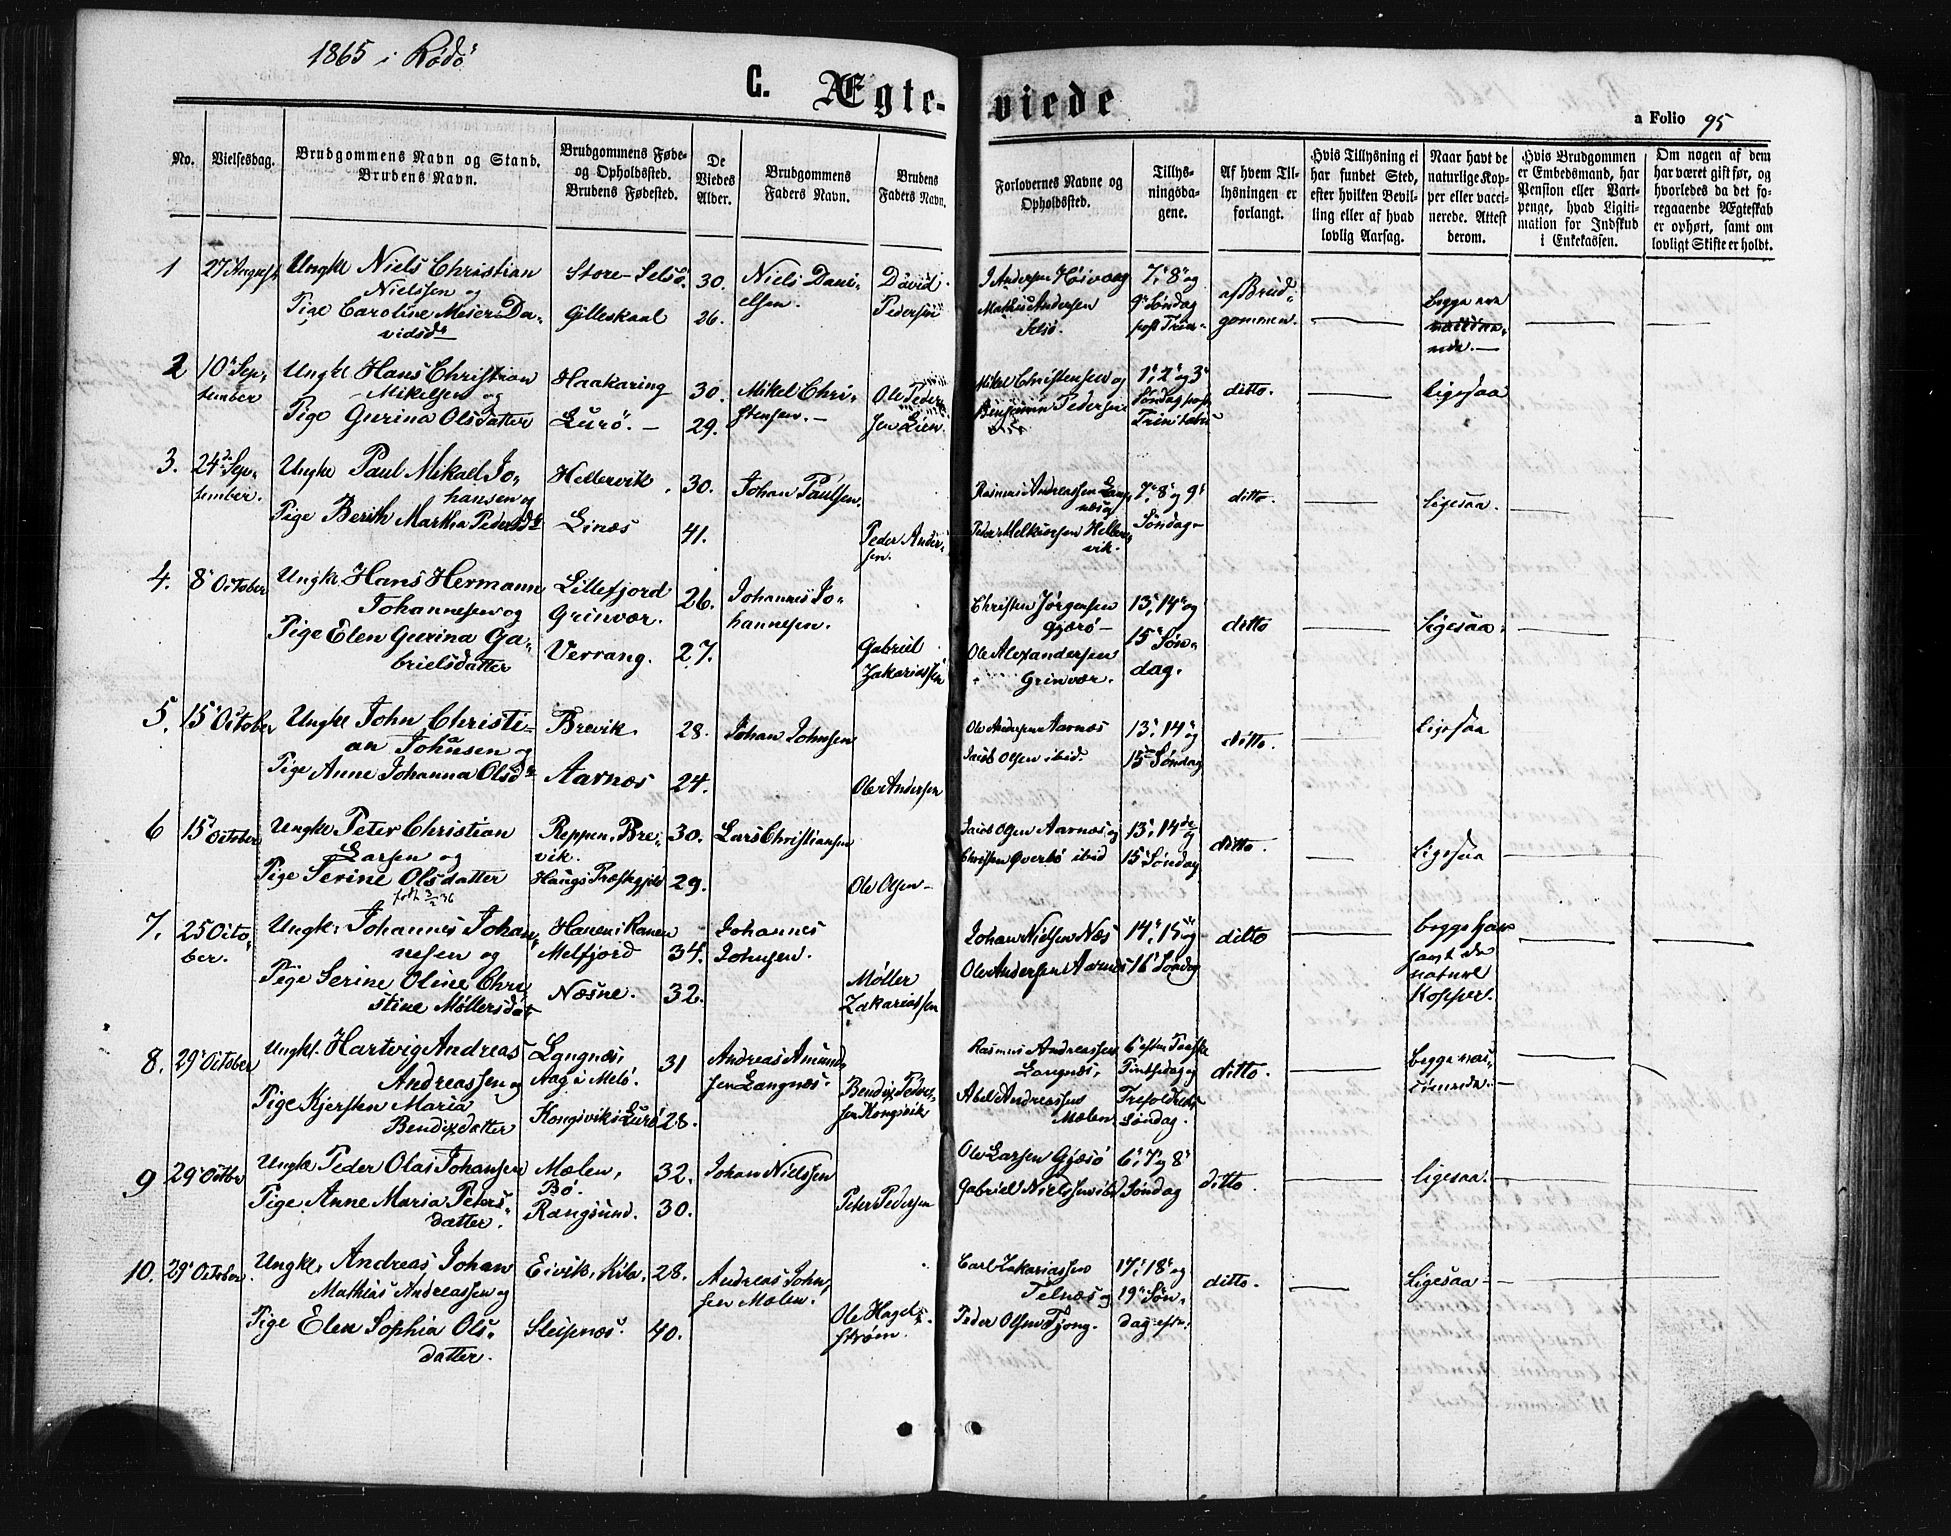 1865 i Rödö
C. Ægte-
viede
a Folio 95
No.
Vielsesdag.
Brudgommens Navn og Stand.
Brudens Navn.
Brudgommens Føde-
og Opholdssted.
Brudens Fødested.
De
Viedes
Alder.
Brudgommens
Faders Navn.
Brudens
Faders Navn.
Forlovernes Navne og
Opholdssted.
Tillys-
ningsda-
gene.
Af hvem Til-
lysningen er
forlangt.
Hvis Tillysning ei
har fundet Sted,
efter hvilken Bevil-
ling eller af hvad
lovlig Aarsag.
Naar havt de
naturlige Kop-
per eller vacci-
nerede. Attest
derom.
Hvis Brudgommen
er Embedsmand, har
Pension eller Vart-
penge, hvad Ligiti-
mation for Indskud
i Enkekassen.
Om nogen af dem
har været gift før, og
hvorledes da det fo-
regaaende Ægteskab
er ophørt, samt om
lovligt Skifte er holdt.
1
27 August
Ungkl Niels Christian
Nielssen og
Pige Caroline Da-
vidsd
Store-Selsö.
Gilleskaal
30.
26.
Niels Dani-
elsen.
David
Pedersen
J Andersen
Mathis Andersen
Selsö.
7, 8 og
9 Söndag
post Trin-
af Brud-
gommen.
begge ere
2
10 Sep-
tember
Ungkl Hans Christian
Mikelsen og
Pige Gurina Olsdatter
Haakaring
Lurö. -
30.
29.
Mikel Chri-
stensen. -
Ole Peder-
sen Lien.
Mikel Christensen og
Benjamin Pedersen
1, 2 og 3
Söndag post
Trinitatis
ditto.
ligesaa
3.
24 Sep-
tember.
Ungkl Paul Mikael Jo-
hansen og
Pige Berith Martha Pedersd
Hellervik
Linæs
30.
41.
Johan Paulsen.
Peder Ander-
sen.
Rasmus Andreassen Lang-
næs og
Peder Melkiorsen Heller-
vik.
7, 8 og 9
Söndag
ditto.
Ligesaa.
4.
8 October
Ungkl. Hans Hermann
Johannesen og
Pige Elen Gurina Ga-
brielsdatter
Lillefjord
Grinvær.
Verrang.
26.
27.
Johannes Jo-
hannesen.
Gabriel
Zakariassen
Christen Jörgensen
Gjærö-
Ole Alexandersen
Grinvær.
13, 14 og
15 Sön-
dag.
ditto
Ligesaa.
5.
15 October
Ungkl John Christi-
an Johansen og
Pige Anne Johanna Olsd
Brevik.
Aarnæs
28.
24.
Johan Johnsen
Ole Andersen
Ole Andersen Aarnæs
Jacob Olsen ibid.
13, 14 og
15 Söndag
ditto.
Ligesaa
6
15 October
Ungkl Peter Christian
Larsen og
Pige Serine Olsdatter
Reppen, Bre-
vik.
Haugs Præstegjeld
30.
29.
Lars Christiansen
Ole Olsen
Jacob Olsen Aarnæs og
Christen Överbö ibid
13, 14de og
15 Söndag
ditto.
Ligesaa
7.
25 Octo-
ber.
Ungkl. Johannes Johan-
nesen og
Pige Serine Oline Chri-
stine Möllersdat
i Ranen
Melfjord
Næsne.
34.
32.
Johannes
Johnsen.
Møller
Zakariassen
Johan Nielsen Næs
Ole Andersen Aarnæs
14, 15 og
16 Söndag
ditto
begge have
havt de
naturl
Kopper.
8.
29 October
Ungkl. Hartvig Andreas
Andreassen og
Pige Kjersten Maria
Bendixdatter
Langnæs,
Aag i Melö.
Kongsvik i Lurö
31
28.
Andreas Amund-
sen Langnæs.
Bendix Peder-
sen Kongsvik
Rasmus Andreassen
Langnæs,
Abel Andreassen
Mælen.
6 efter
og
Söndag.
ditto.
begge vac-
cinerede.
9
29 Octbr
Ungkl Peder Olai Johansen
Pige Anne Maria Peters-
datter.
Mælen,
Bö.
Rangsund.
32.
30.
Johan Nielssen
Peter Pedersen
Ole Larsen Gjæsö
Gabriel Nielssen ibd
6, 7 og 8
Söndag
ditto.
ligesaa.
10.
29 October
Ungkl. Andreas Johan
Mathias Andreassen og
Pige Elen Sophia Ols-
datter.
Eivik, Kila.
Sleipnæs.
28.
40.
Andreas John-
sen Mælen.
Ole Hagel-
ström.
Carl Zakariassen
Telnæs og
Peder Olsen Tjong.
17, 18 og
19 Sön-
dag eft.
ditto.
Ligesaa